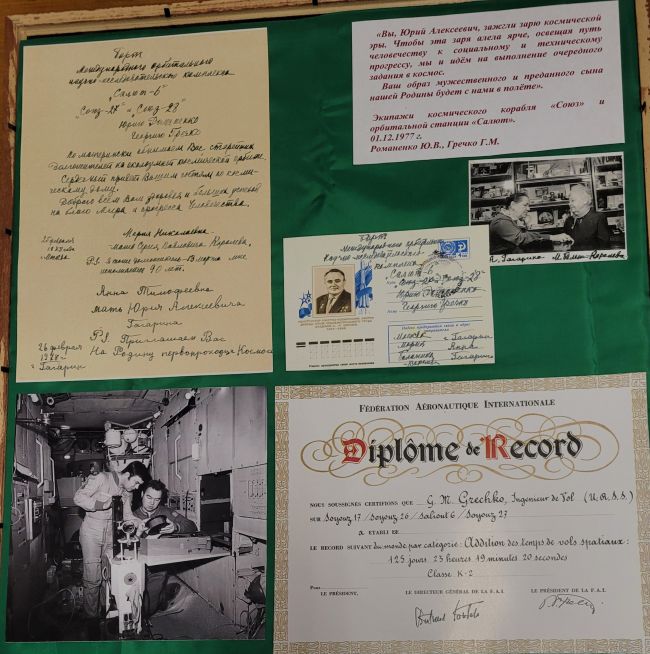 Борт
Международного орбитального
научно-исследовательского комплекса
„Салют-6"
„Союз-27" и „Союз-28"
Юрию Романенко
Георгию Гречко
По матерински обнимаем Вас старейших
долгожителей на околоземной космической орбите.
Сердечный привет Вашим гостям по косми-
ческому дому.
Доброго всем Вам здоровья и больших успехов
на благо Мира и прогресса Человечества.
Мария Николаевна
мать Сергея Павловича Королева,
P.S. 90 лет.
Анна Тимофеевна
мать Юрия Алексеевича
Гагарина
P.S. Приглашаем Вас
На Родину первопроходца Космоса
26 февраля
г. Гагарин
«Вы, Юрий Алексеевич, зажгли зарю космической
эры. Чтобы эта заря алела ярче, освещая путь
человечеству к социальному и техническому
прогрессу, мы и идём на выполнение очередного
задания в космос.
Ваш образ мужественного и преданного сына
нашей Родины будет с нами в полёте».
Экипажи космического корабля «Союз» и
орбитальной станции «Салют».
01.12.1977 г.
Романенко Ю.В., Гречко Г.М.
А. Гагарина
Борт
Международного орбитального
Научно-исследовательского
комплекса
Салют-6
Союз-28"
Юрию Романенко
Георгию Гречко
Москва г. Гагарин
Мария Анна
FÉDÉRATION AÉRONAUTIQUE INTERNATIONALE
Diplôme de Record
NOUS SOUSSIGNÉS CERTIFIONS QUE G. M. Grechko, Ingenieur de Vol (U.R.S.S.)
SUR Soyouz 17 / Soyouz 26 / Saliout 6 / Soyouz 27
A ETABLI LE
LE RECORD SUIVANT du monde par categorie: Addition des temps de vols spatiaux:
125 jours 23 heures 49 minutes 20 secondes
Classe K-2
LE PRÉSIDENT, LE DIRECTEUR GÉNÉRAL DE LA F.A.I. LE PRÉSIDENT DE LA F.A.I.